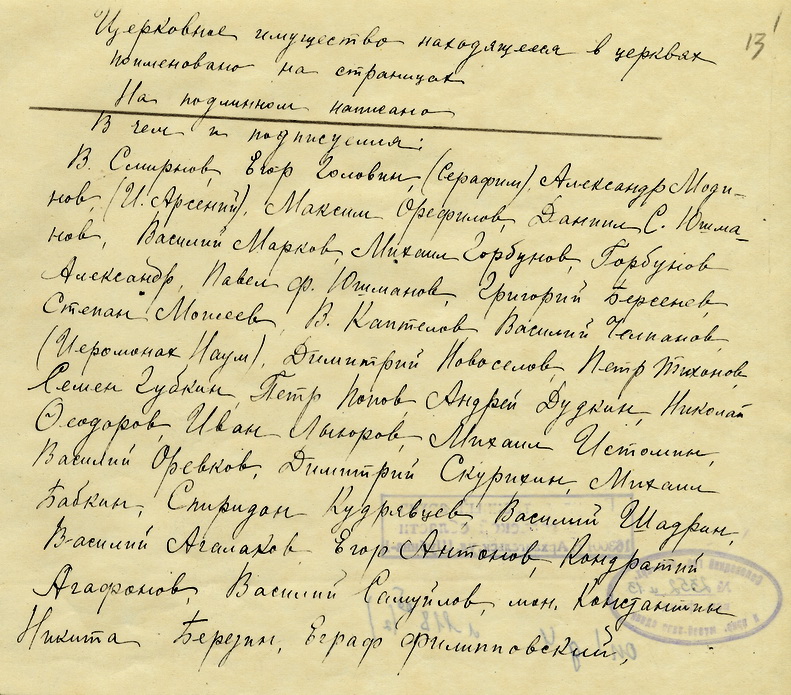 13
Церковное имущество находящееся в церквях
поименовано на страницах
На подлинном написано
В чем и подписуемся:
В. Смирнов, Егор Головин, (Серафим), Александр Моди-
нов, (И. Арсений), Максим Орефилов, Даниил С. Юшма-
нов, Василий Марков, Михаил Горбунов, Горбунов
Александр, Павел Ф. Юшманов, Григорий Берсенев,
Степан Моисеев, В. Каптелов Василий Челпанов,
(Иеромонах Наум), Димитрий Новоселов, Петр Тихонов,
Семен Губкин, Петр Попов, Андрей Дудкин, Николай
Феодоров, Иван, Михаил Истомин,
Василий Оревков, Димитрий Скурихин, Михаил
Бабкин, Спиридон Кудрявцев Василий Шадрин,
Василий Агалаков, Егор Антонов, Кондратий
Агафонов, Василий Самуйлов, мон. Константин
Никита Березин, Евграф Филипповский,